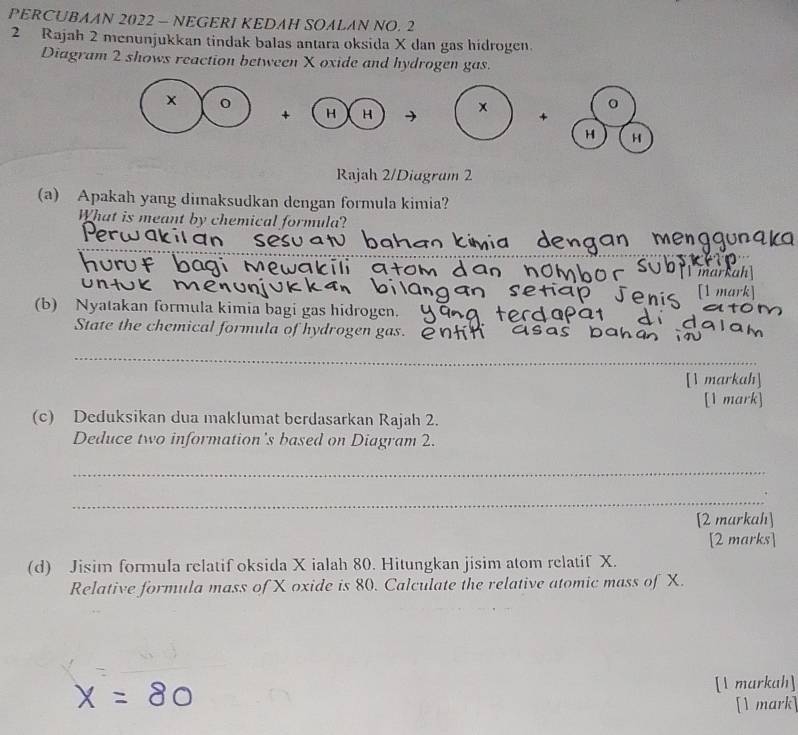 PERCUBAAN 2022 – NEGERI KEDAH SOALAN NO. 2
2 Rajah 2 menunjukkan tindak balas antara oksida X dan gas hidrogen.
Diagram 2 shows reaction between X oxide and hydrogen gas.
X O + H H → X + O H H
Rajah 2/Diagram 2
(a) Apakah yang dimaksudkan dengan formula kimia?
What is meant by chemical formula?
Perwakilan sesuatu bahan kimia dengan menggunaka
huruf bagi mewakili atom dan nombor subskrip
[1 markah]
untuk menunjukkan bilangan setiap jenis atom
[1 mark]
(b) Nyatakan formula kimia bagi gas hidrogen. yang terdapat di dalam
State the chemical formula of hydrogen gas. entiti asas bahan itu
[1 markah]
[1 mark]
(c) Deduksikan dua maklumat berdasarkan Rajah 2.
Deduce two information's based on Diagram 2.
[2 markah]
[2 marks]
(d) Jisim formula relatif oksida X ialah 80. Hitungkan jisim atom relatif X.
Relative formula mass of X oxide is 80. Calculate the relative atomic mass of X.
X = 80
[1 markah]
[1 mark]